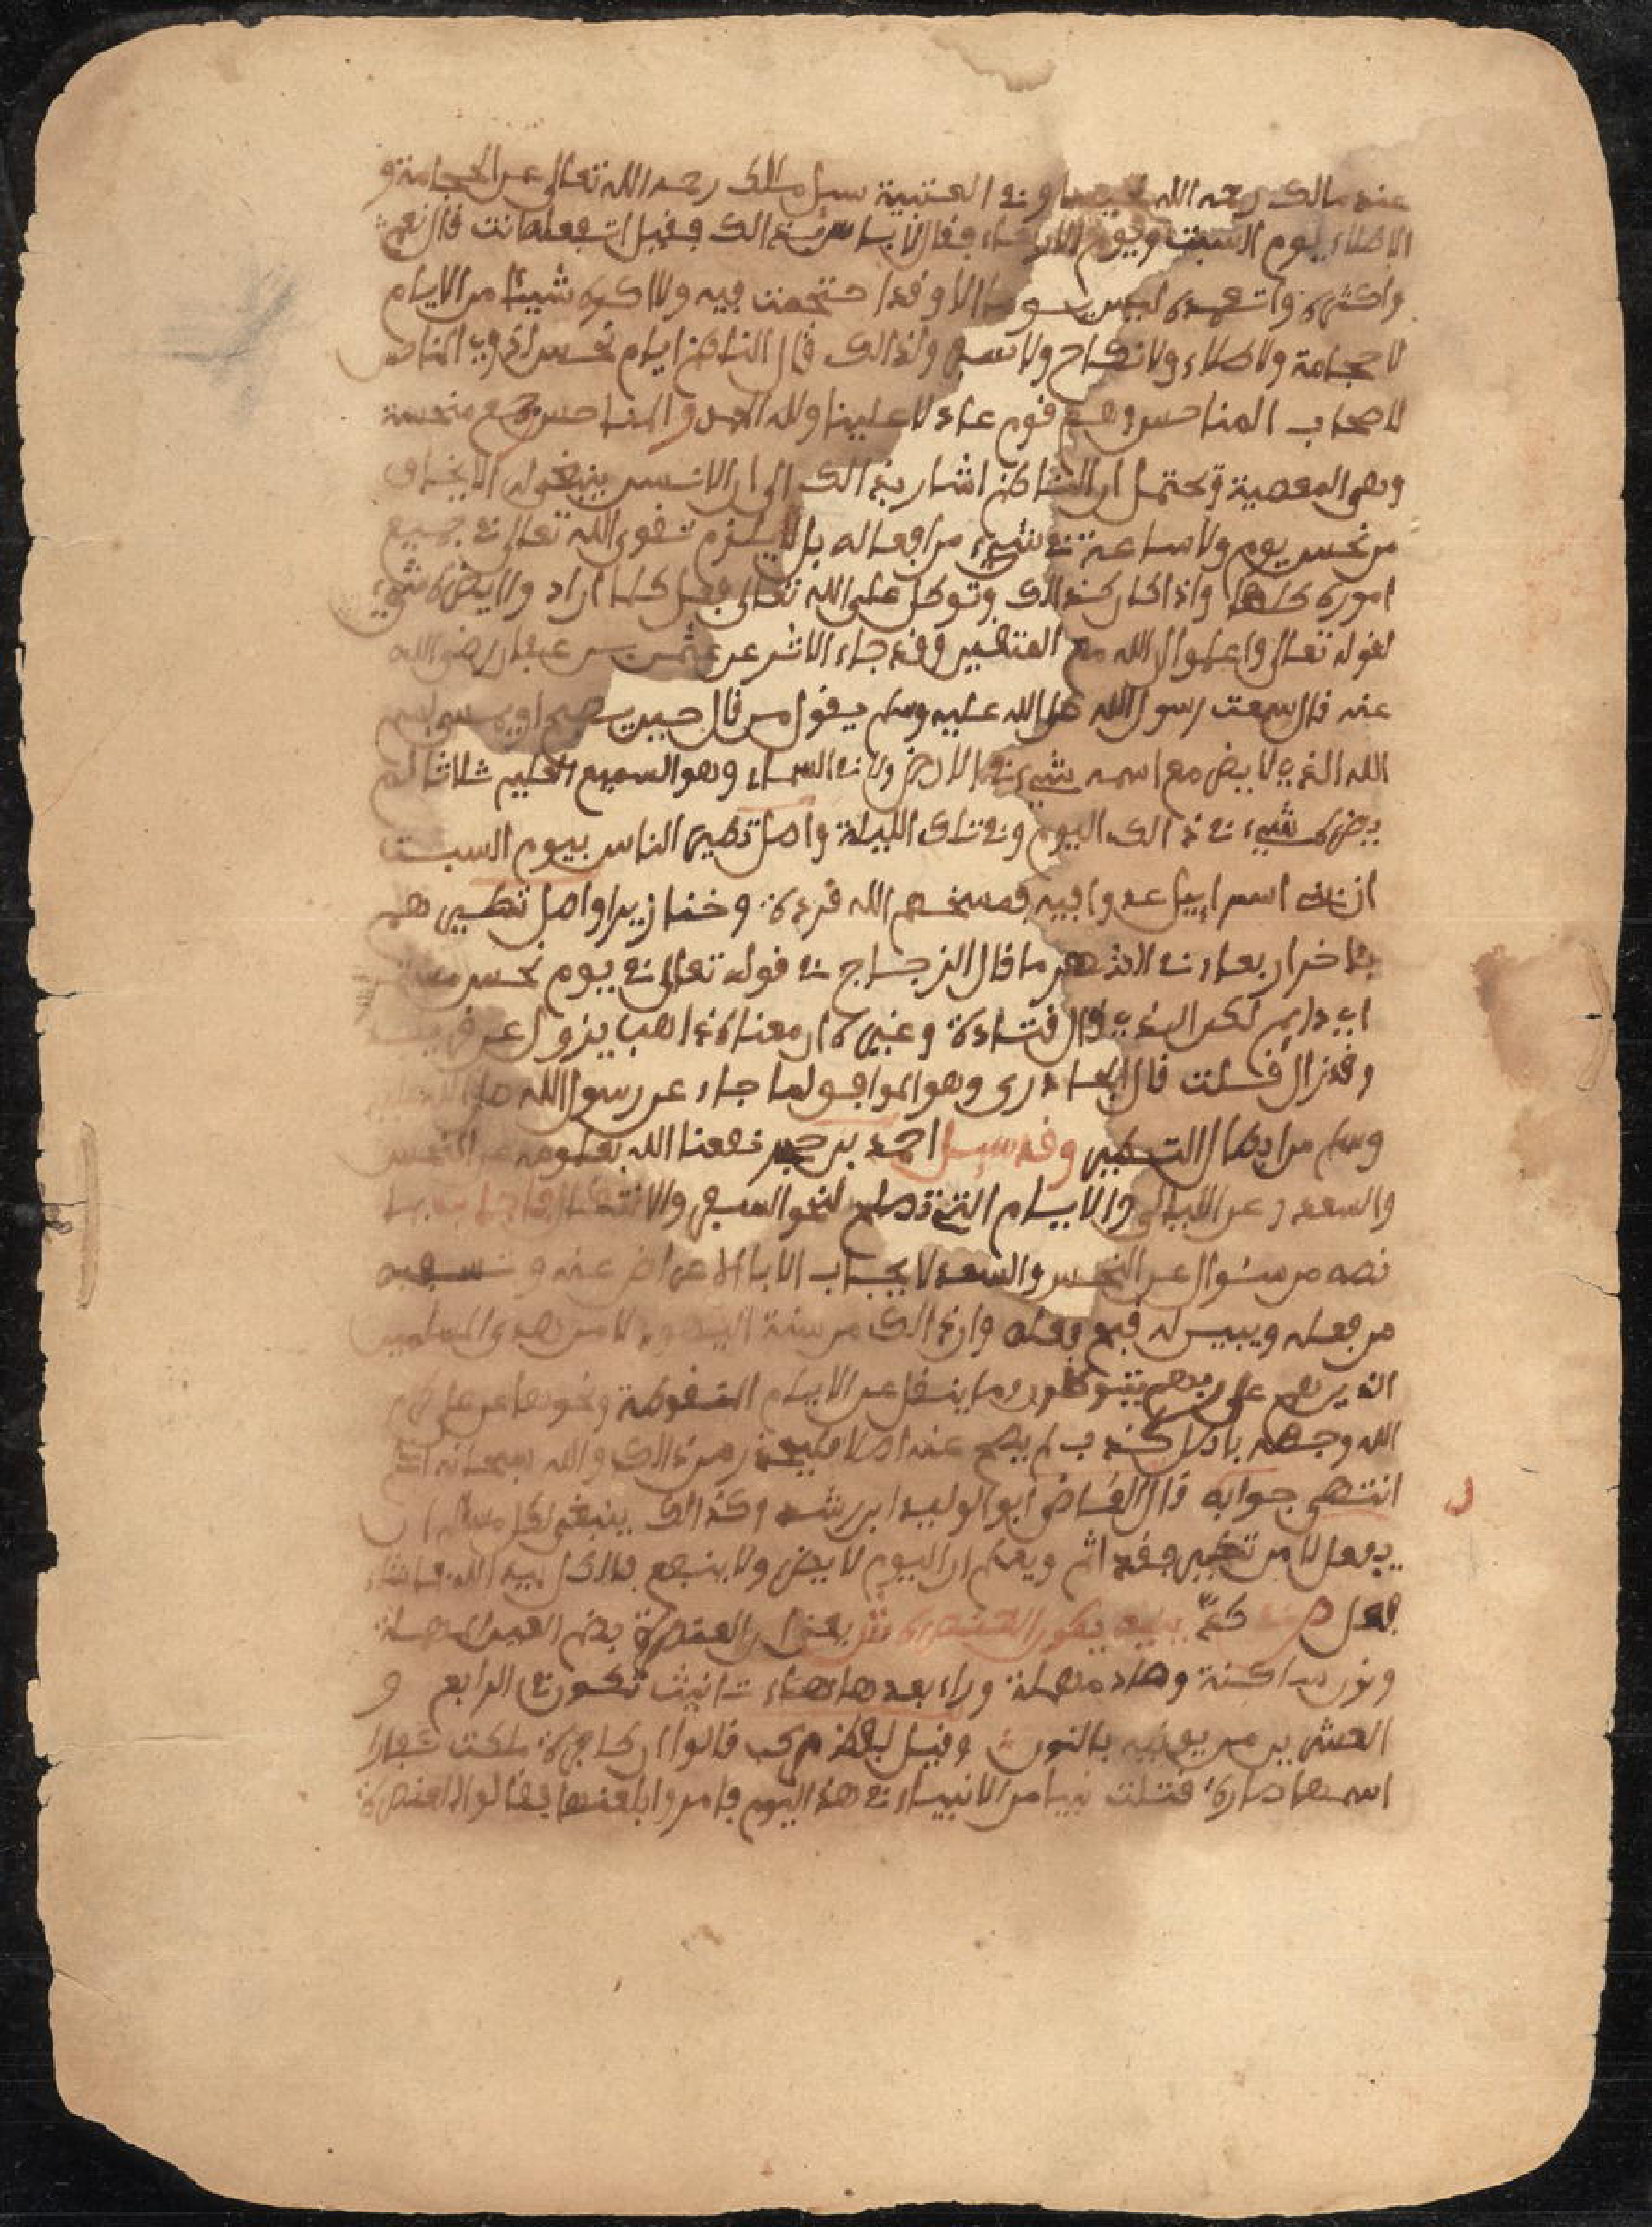 عند مالك رحمه الله وفي العتبية سيل مالك رحمه الله تعالى عن الحجامة و
الاطلاء يوم السبت ويوم الاربعاء فقال لا باس بذالك فقيل اتفعله انت قال نعم
واكثره واتعمده ليس يوم الا وقد احتجمت فيه ولا اكره شيئا من الايام
لا حجامة ولا طلاء ولا نكاح ولا سفر ولذالك قال الناظم ايام نحس لذوي المناحس
لاصحاب المناحس وهم قوم عاد لا علينا ولله الحمد والمناحس جمع منحسة
وهى المعصية ويحتمل ان الناظم اشار بذالك الى ان الانسان ينبغي له الا يخاف
من نحس يوم ولا ساعة في شيء من افعاله بل يلزم تقوى الله تعالى في جميع
اموره كلها واذا كان كذالك وتوكل على الله تعالى فعل كلما اراد ولا يضره شيء
لقوله تعالى واعلموا ان الله مع المتقين وقد جاء الاثر عن عثمن بن عفان رضي الله
عنه قال سمعت رسول الله صلى الله عليه وسلم يقول من قال حين يصبح او يمسي بسم
الله الذي لا يضر مع اسمه شيء في الارض ولا في السماء وهو السميع العليم ثلاثا لم
يضره شيء في ذالك اليوم وفي تلك الليلة واصل تطير الناس بيوم السبت
ان بني اسراييل عدوا فيه فمسخهم الله قردة وخنازير واصل تطيرهم
بآخر اربعاء في الشهر ما قال الزجاج في قوله تعالى في يوم نحس مستمر
اي دايم لكن الذي قال قتادة وغيره ان معناه ذاهب يزول عن قريب
وقد زال قلت قال وهو الموافق لما جاء عن رسول الله صلى الله عليه
وسلم من ابطال التطير وقد سيل احمد بن حجر نفعنا الله بعلومه عن النحس
والسعد وعن الليالي والايام التي تصلح لنحو السفر والانتقال فاجاب بما
نصه من سئوال عن النحس والسعد لا يجاب الا بالاعراض عنه وتسفيه
من فعله ويبين له قبح فعله وان ذالك من سنة اليهود لا من هدي المسلمين
الذين هم على ربهم يتوكلون وما ينقل عن الايام المنقوطة ونحوها عن علي كرم
الله وجهه باطل كذب لم يصح عنه اصلا فليحذر من ذالك والله سبحانه اعلم
انتهى جوابه قال القاضي ابو الوليد ابن رشد وكذالك ينبغي لكل مسلم ان
يفعل لا من تطير فقد اثم ويعلم ان اليوم لا يضر ولا ينفع فالكل بيد الله ما شاء
فعل يكون العنصرة يعني ان العنصرة بضم العين المهملة
ونون ساكنة وصاد مهملة وراء بعدها هاء تانيث تكون في الرابع و
العشرين من يونيه بالنون وقيل قالوا ان كافرة ملكت
اسمها قتلت نبيا من الانبياء في هذا اليوم فامروا بلعنها فقالوا العنصرة